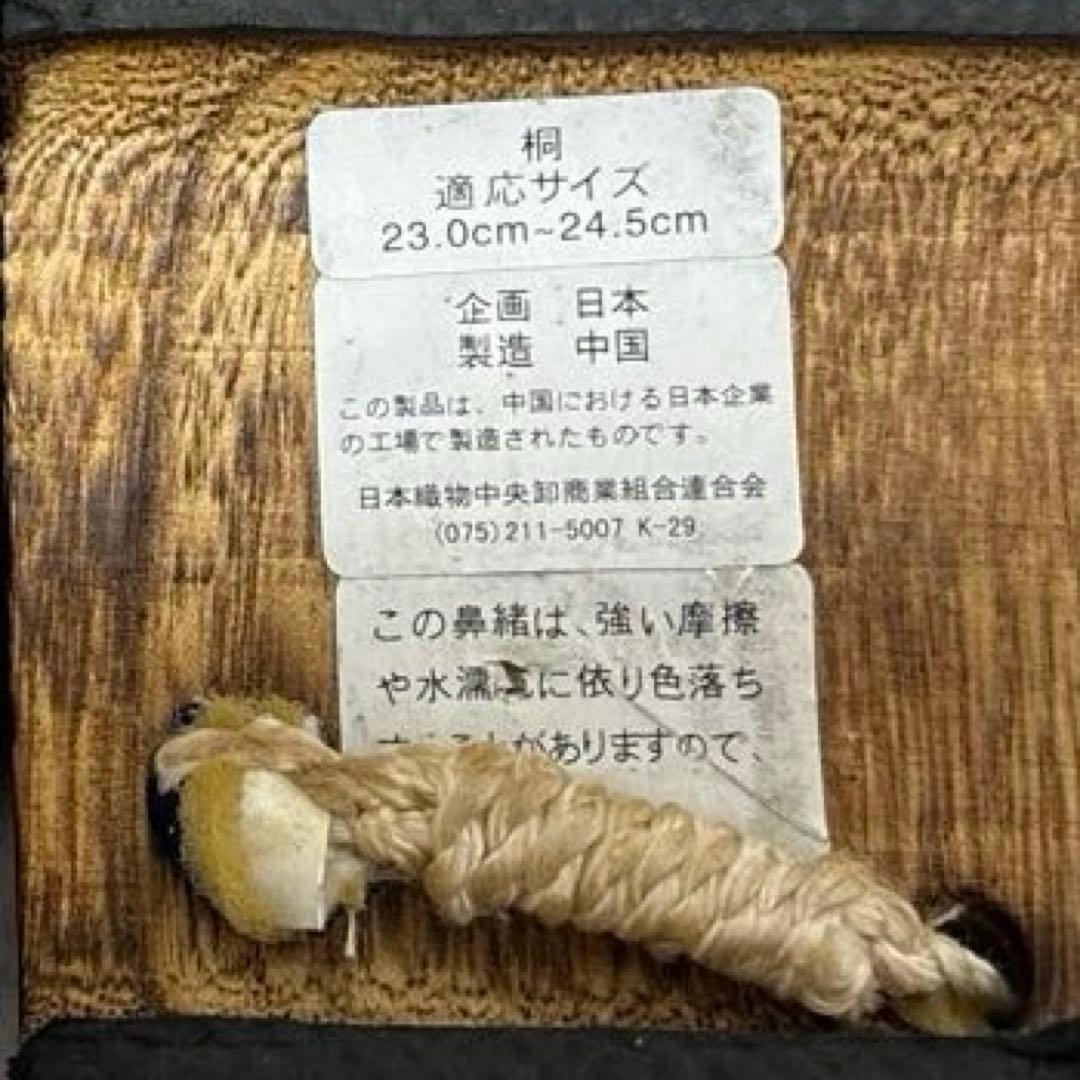 桐
適応サイズ
23.0cm~24.5cm
企画　日本
製造　中国
この製品は、中国における日本企業
の工場で製造されたものです。
日本織物中央卸商業組合連合会
(075)211-5007 K-29
この鼻緒は、強い摩擦
や水濡れに依り色落ち
がありますので、